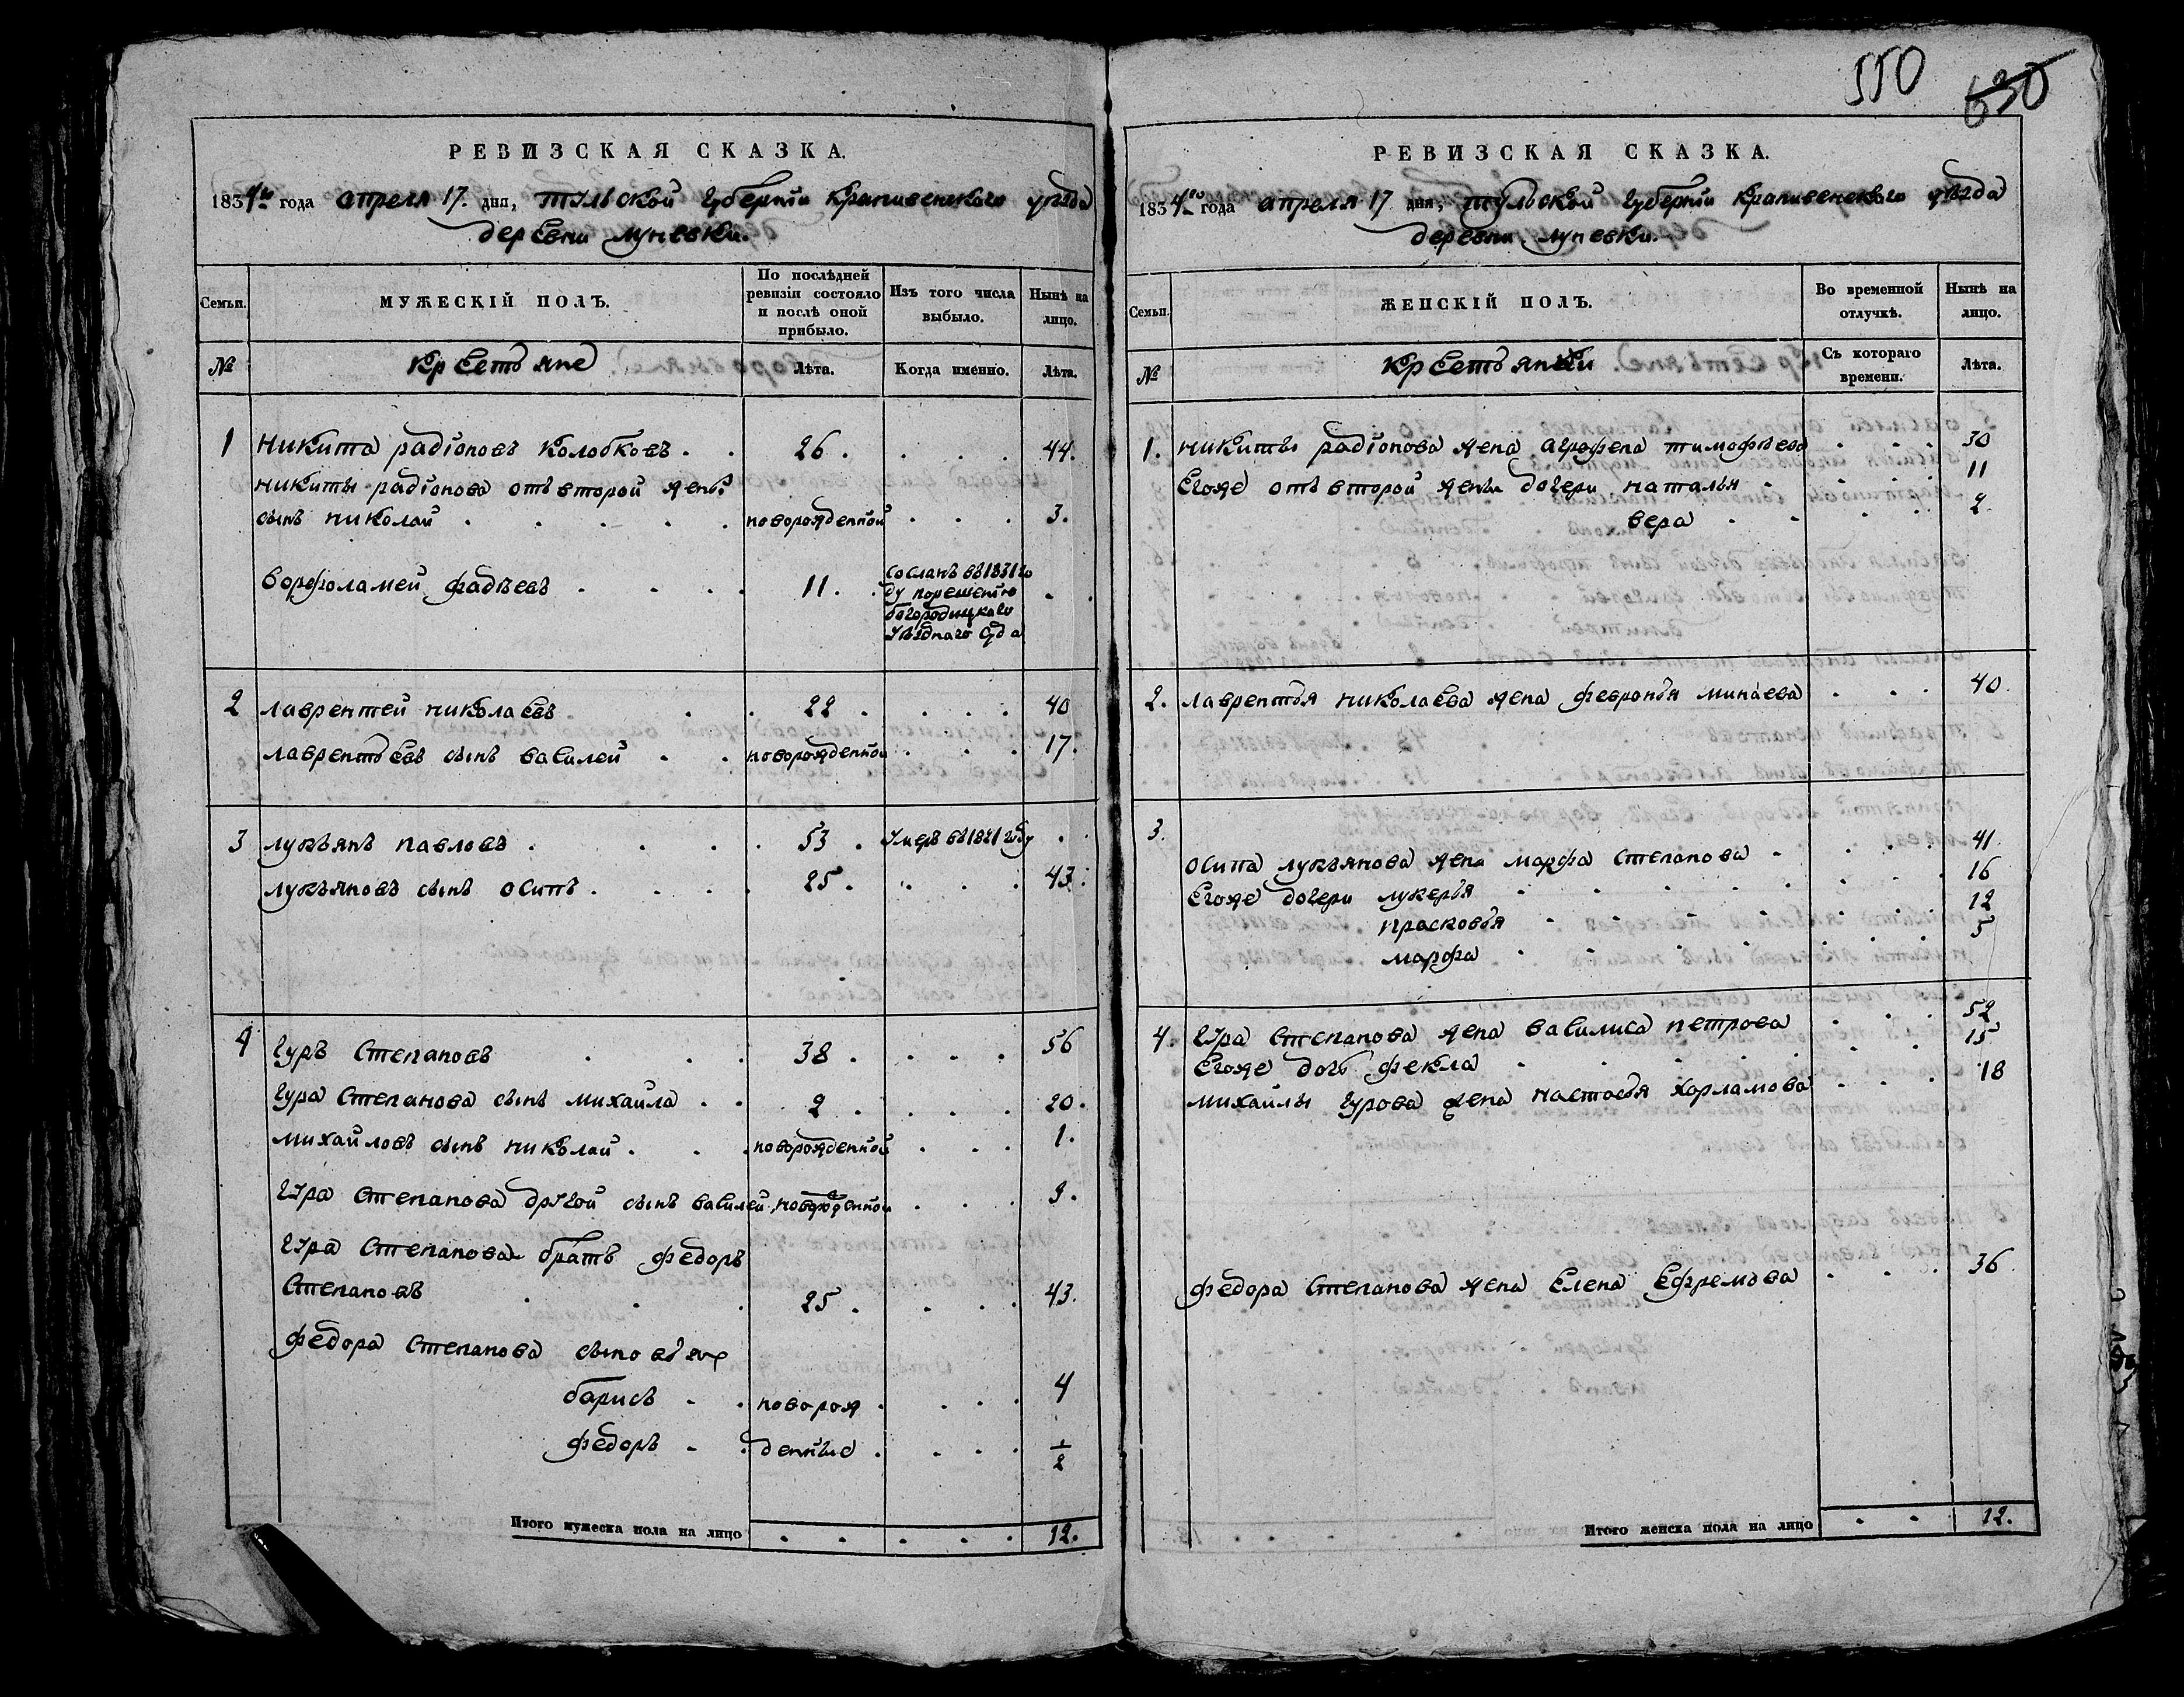 550
630
РЕВИЗСКАЯ СКАЗКА.
1834го года апреля 17. дня, тульской губерніи Крапивенского уѣзда
деревни луневки.
Семьи.
МУЖЕСКІЙ ПОЛЪ.
По послѣдней ревизіи состояло и послѣ оной прибыло.
Изъ того числа выбыло.
Нынѣ на лицо.
№
Крестьяне
Лѣта.
Когда именно.
Лѣта.
1 никита радіоновъ Колобковъ 26. 44.
никиты радіонова отъ второй жены
сынъ николай новорожденной 3.
ворфоламей фадѣевъ 11. сосланъ въ 1831 го
ду порешенію
богородицкаго
уѣзднаго суда
2 лаврентей николаевъ 22 40
лаврентьевъ сынъ василей новорожденной 17.
3 лукьянъ павловъ 53 умеръ въ 1821 году
лукьяновъ сынъ осипъ 25. 43.
4 гуръ степановъ 38 56
гура степанова сынъ михайла 2 20.
михайловъ сынъ николай новорожденной 1.
гура степанова другой сынъ василей новорожденной 9.
гура степанова братъ федоръ
степановъ 25. 43.
федора степанова сыновья
барисъ новорож 4
федоръ денные 1/2
Итого мужеска пола на лицо 12.
РЕВИЗСКАЯ СКАЗКА.
1834го года апреля 17 дня, тульской губерніи Крапивенскаго уѣзда
деревни луневки.
Семьи.
ЖЕНСКІЙ ПОЛЪ.
Во временной отлучкѣ.
Нынѣ на лицо.
№
Крестьянки
Съ котораго времени.
Лѣта.
1. никиты радіонова жена агрофена тимофѣева 30
Егоже отъ второй жены дочери наталья 11
вера 2
2. лаврентья николаева жена февронья минаева 40.
3.
осипа лукьянова жена марфа степанова 41.
Егоже дочери лукерья 16
прасковья 12
марфа 5
4. гура степанова жена василиса петрова 52
Егоже дочь фекла 15
михайлы гурова жена настасья харламова 18
федора степанова жена Елена Ефремова 36.
Итого женска пола на лицо 12.